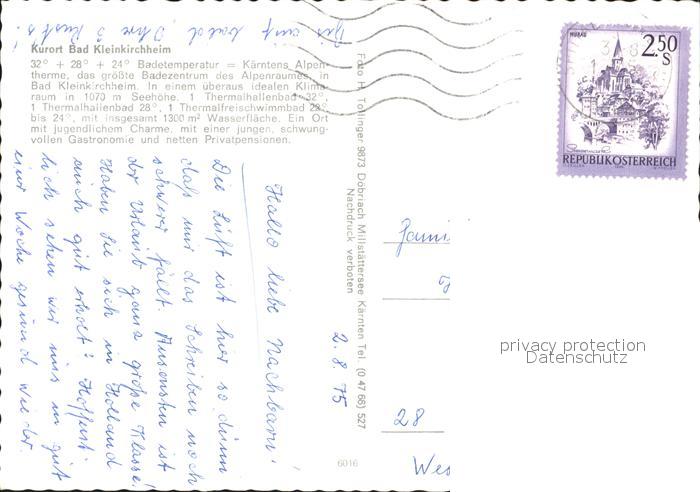 Kurort Bad Kleinkirchheim
32° + 28° + 24° Badetemperatur = Kärntens Alpen-
therme, das größte Badezentrum des Alpenraumes, in
Bad Kleinkirchheim. In einem überaus idealen Klima-
raum in 1070 m Seehöhe. 1 Thermalhallenbad 32°,
1 Thermalhallenbad 28°, 1 Thermalfreischwimmbad 22°
bis 24°, mit insgesamt 1300 m² Wasserfläche. Ein Ort
mit jugendlichem Charme, mit einer jungen, schwung-
vollen Gastronomie und netten Privatpensionen.
Hallo liebe Nachbarn!
Die Luft ist hier so dünn
daß mir das Schreiben noch
schwerer fällt. Ansonsten ist
der Urlaub ganz große Klasse!
Haben Sie sich in Holland
auch gut erholt? Hoffent-
lich sehen wir uns in gut
einer Woche gesund wieder.
Bis auf bald, Ihre 3
2.8.75
Foto H. Tollinger 9873 Döbriach Millstättersee Kärnten Tel. (0 47 66) 527
Nachdruck verboten
6016
MURAU
2.50
S
REPUBLIK ÖSTERREICH
Fami
28
Wes
privacy protection
Datenschutz